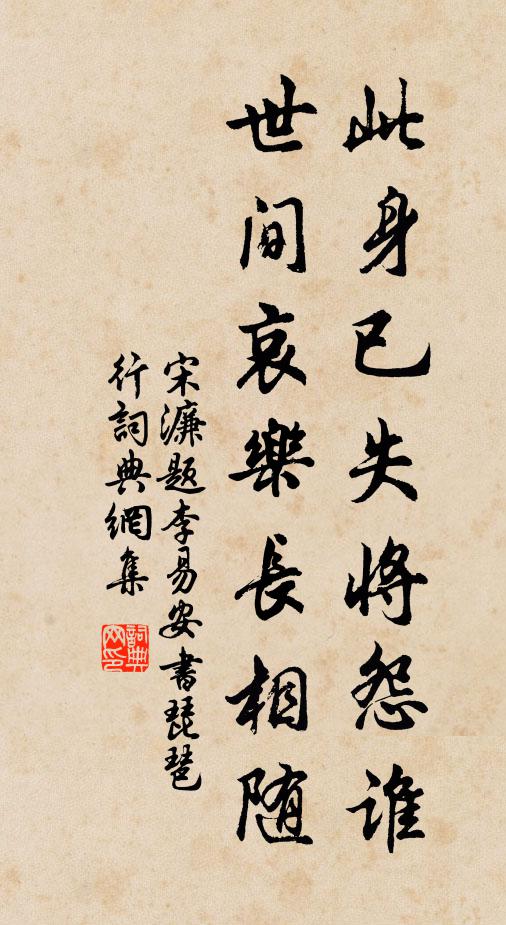 此身已失將怨誰
世间哀樂長相随
宋濂题李易安書琵琶
行詞典網集
詞典
网印